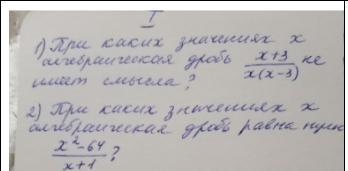 I
1) При каких значениях x
алгебраическая дробь (x+3)/(x(x-3)) не
имеет смысла?
2) При каких значениях x
алгебраическая дробь равна нулю
(x²-64)/(x+1)?